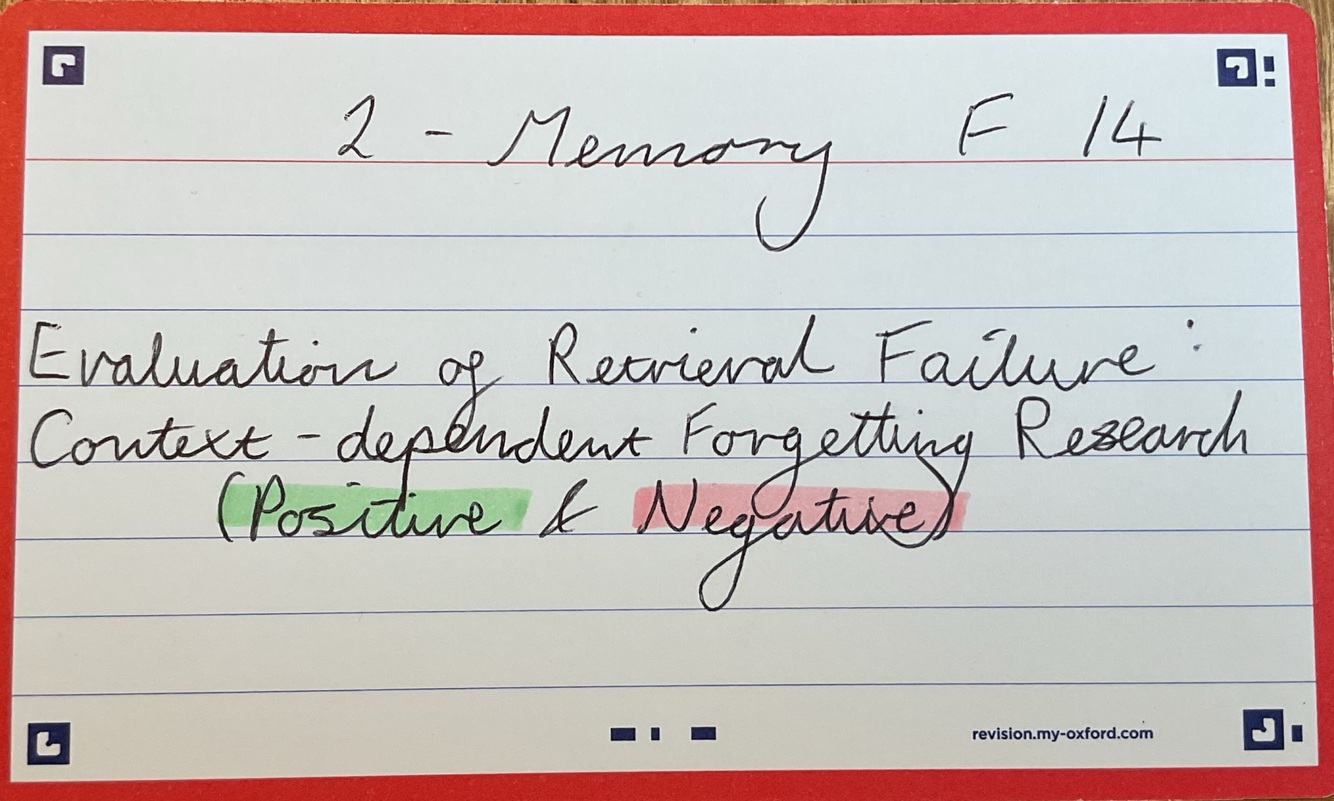 2 - Memory F 14
Evaluation of Retrieval Failure:
Context-dependent Forgetting Research
(Positive & Negative)
revision.my-oxford.com